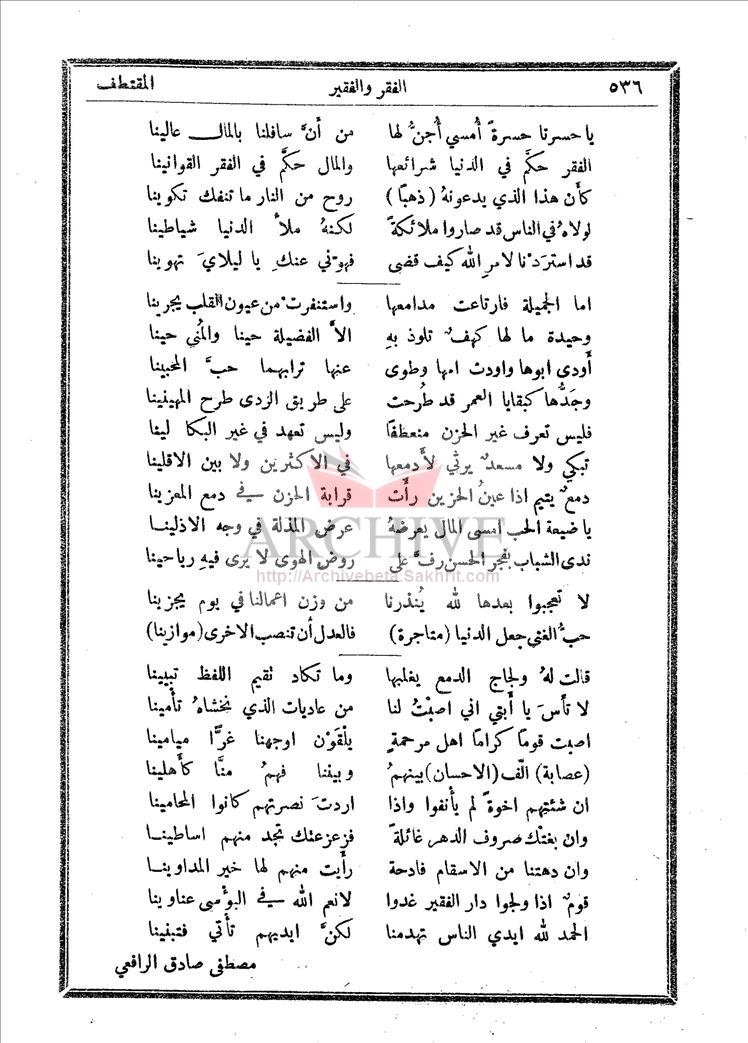 ٥٣٦ الفقر والفقير المقتطف
يا حسرتا حسرةً أُمسي أُجنُّ لها من أنَّ سافلنا بالمال عالينا
الفقر حكَّم في الدنيا شرائعها والمال حكَّم في الفقر القوانينا
كأن هذا الذي يدعونهُ (ذهبًا) روح من النار ما تنفك تكوينا
لولاهُ في الناس قد صاروا ملائكةً لكنهُ ملأ الدنيا شياطينا
قد استردَّنا لامرِ الله كيف قضى فهوّني عنكِ يا ليلايَ تهوينا
اما الجميلة فارتاعت مدامعها واستنفرت من عيون القلب يجرينا
وحيدة ما لها كهفٌ تلوذ بهِ الاَّ الفضيلة حينا والمُنى حينا
أودى ابوها واودت امها وطوى عنها ترابهما حبَّ المحبينا
وجَدُّها كبقايا العمر قد طُرحت على طريق الردى طرح المهينينا
فليس تعرف غير الحزن منعطفًا وليس تعهد في غير البكا لينا
تبكي ولا مسعدٌ يرثي لأَدمعها في الاكثرين ولا بين الاقلينا
دمعٌ يتيم اذا عينُ الحزين رأَت قرابة الحزن في دمع المعزينا
يا ضيعة الحب امسى المال يعرضهُ عرض المذلة في وجه الاذلينا
ندى الشباب بفجر الحسن رفَّ على روض الهوى لا يرى فيهِ رياحينا
لا تعجبوا بعدها لله يُنذرنا من وزن اعمالنا في يوم يجزينا
حبُّ الغنى جعل الدنيا (متاجرة) فالعدل أن تنصب الاخرى (موازينا)
قالت لهُ ولجاج الدمع يغلبها وما تكاد تقيم اللفظ تبيينا
لا تأسَ يا أَبتي اني اصبْتُ لنا من عاديات الذي نخشاهُ تأمينا
اصبت قومًا كرامًا اهل مرحمةٍ يلْقَوْن اوجهنا غرًّا ميامينا
(عصابة) الّف (الاحسان) بينهمُ وبيننا فهمُ منَّا كأَهلينا
ان شئتهم اخوةً لم يأنفوا واذا اردتَ نصرتهم كانوا المحامينا
وان بغتْك صروف الدهر غائلةً فزعزعتك تجد منهم اساطينا
وان دهتنا من الاسقام فادحة رأَيت منهم لها خير المداوينا
قومٌ اذا ولجوا دار الفقير غدوا لانعم الله في البؤسى عناوينا
الحمد لله ايدي الناس تهدمنا لكنَّ ايديهم تأتي فتبنينا
مصطفى صادق الرافعي
ARCHIVE
http://Archivebeta.Sakhrit.com